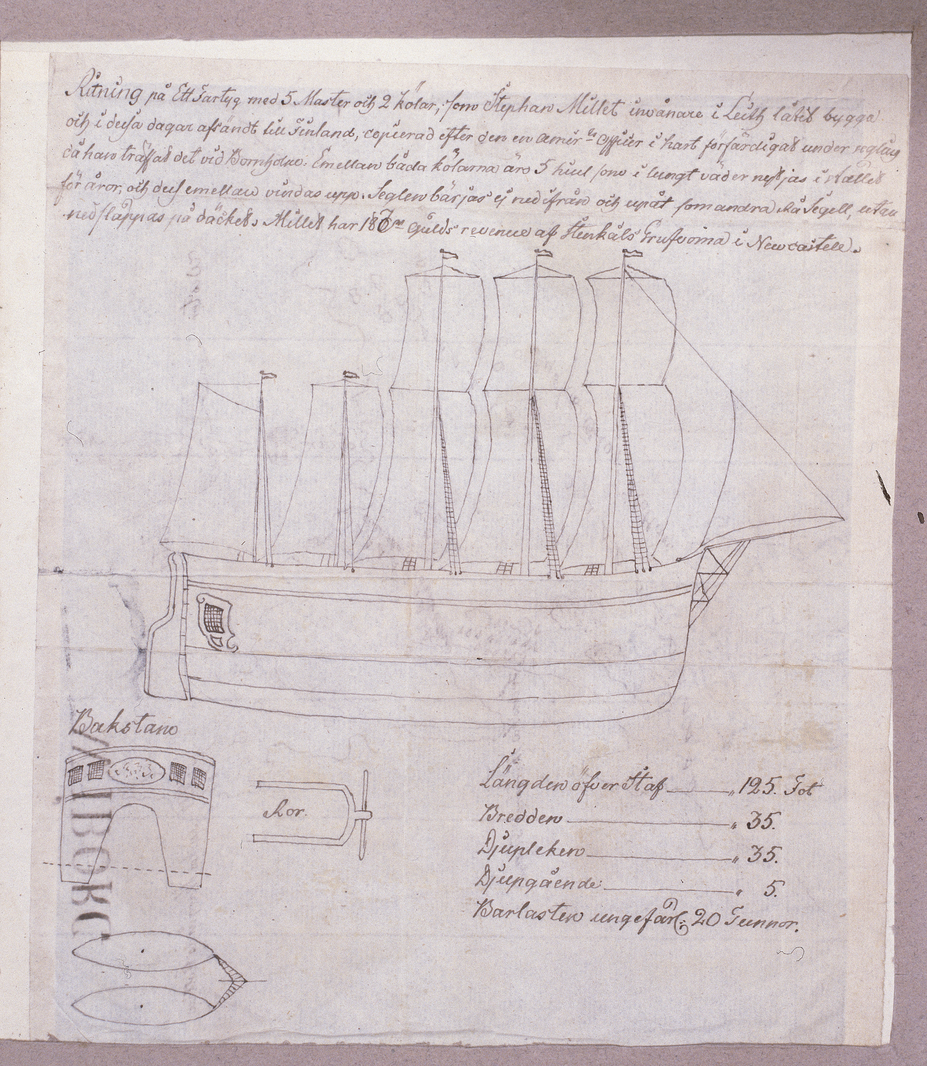 Ritning på Ett Fartyg med 5 Master och 2 kölar, som Stephan Millet invånare i Leith låtit bygga
och i dessa dagar afsändt till Finland, copierad efter den en amir-ts officier i hast förfärdigat under segling
då han träffat det vid Bornholm. Emellan båda kölarna äro 5 hiul som i lungt väder nedsläppas i stället
för åror, och dess emellan vindas upp. Seglen bärjas ej nedifrån och upåt som andra Rå Segell, utan
nedsläppas på däcket. Millet har Guld revenue af Stenkåls Grufvorna i Newcastele.
Bakstam
Ror.
Längden öfver Staf „ 125. Fot
Bredden „ 35.
Djupleken „ 35.
Djupgående „ 5.
Barlasten ungefärl: 20 Tunnor.